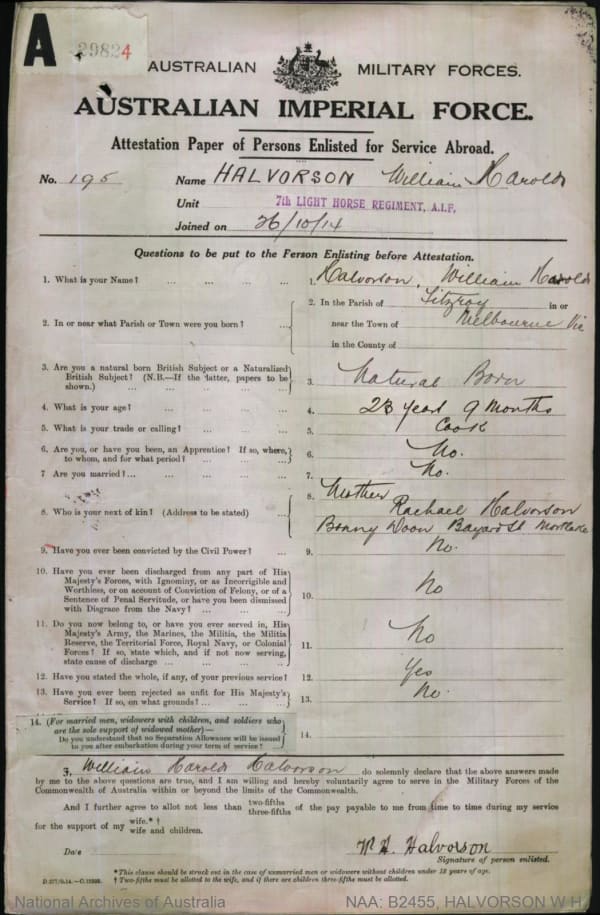 A
29824
AUSTRALIAN MILITARY FORCES.
AUSTRALIAN IMPERIAL FORCE.
Attestation Paper of Persons Enlisted for Service Abroad.
No. 195 Name HALVORSON William Harold
Unit 7th LIGHT HORSE REGIMENT, A.I.F.
Joined on 26/10/14
Questions to be put to the Person Enlisting before Attestation.
1. What is your Name? ... ... ... ... 1. Halvorson, William Harold
2. In or near what Parish or Town were you born? ... 2. In the Parish of Fitzroy in or
near the Town of Melbourne Vic
in the County of
3. Are you a natural born British Subject or a Naturalized
British Subject? (N.B.—If the latter, papers to be
shown.) ... ... ... ... 3. Natural Born
4. What is your age? ... ... ... ... 4. 23 years 9 months
5. What is your trade or calling? ... ... ... 5. Cook
6. Are you, or have you been, an Apprentice? If so, where,
to whom, and for what period? ... ... ... 6. No.
7 Are you married? ... ... ... ... 7. No.
8. Who is your next of kin? (Address to be stated) ... 8. Mother
Rachael Halvorson
Bonny Doon Bayard St Mortlake
9. Have you ever been convicted by the Civil Power? ... 9. No.
10. Have you ever been discharged from any part of His
Majesty's Forces, with Ignominy, or as Incorrigible and
Worthless, or on account of Conviction of Felony, or of a
Sentence of Penal Servitude, or have you been dismissed
with Disgrace from the Navy? ... ... ... 10. No
11. Do you now belong to, or have you ever served in, His
Majesty's Army, the Marines, the Militia, the Militia
Reserve, the Territorial Force, Royal Navy, or Colonial
Forces? If so, state which, and if not now serving,
state cause of discharge ... ... ... ... 11. No
12. Have you stated the whole, if any, of your previous service? 12. Yes
13. Have you ever been rejected as unfit for His Majesty's
Service? If so, on what grounds? ... ... ... 13. No.
14. (For married men, widowers with children, and soldiers who
are the sole support of widowed mother)—
Do you understand that no Separation Allowance will be issued
to you after embarkation during your term of service? 14.
I, William Harold Halvorson do solemnly declare that the above answers made
by me to the above questions are true, and I am willing and hereby voluntarily agree to serve in the Military Forces of the
Commonwealth of Australia within or beyond the limits of the Commonwealth.
And I further agree to allot not less than two-fifths three-fifths of the pay payable to me from time to time during my service
for the support of my wife.*† wife and children.
Date
W H. Halvorson
Signature of person enlisted.
* This clause should be struck out in the case of unmarried men or widowers without children under 18 years of age.
† Two-fifths must be allotted to the wife, and if there are children three-fifths must be allotted.
National Archives of Australia NAA: B2455, HALVORSON W H